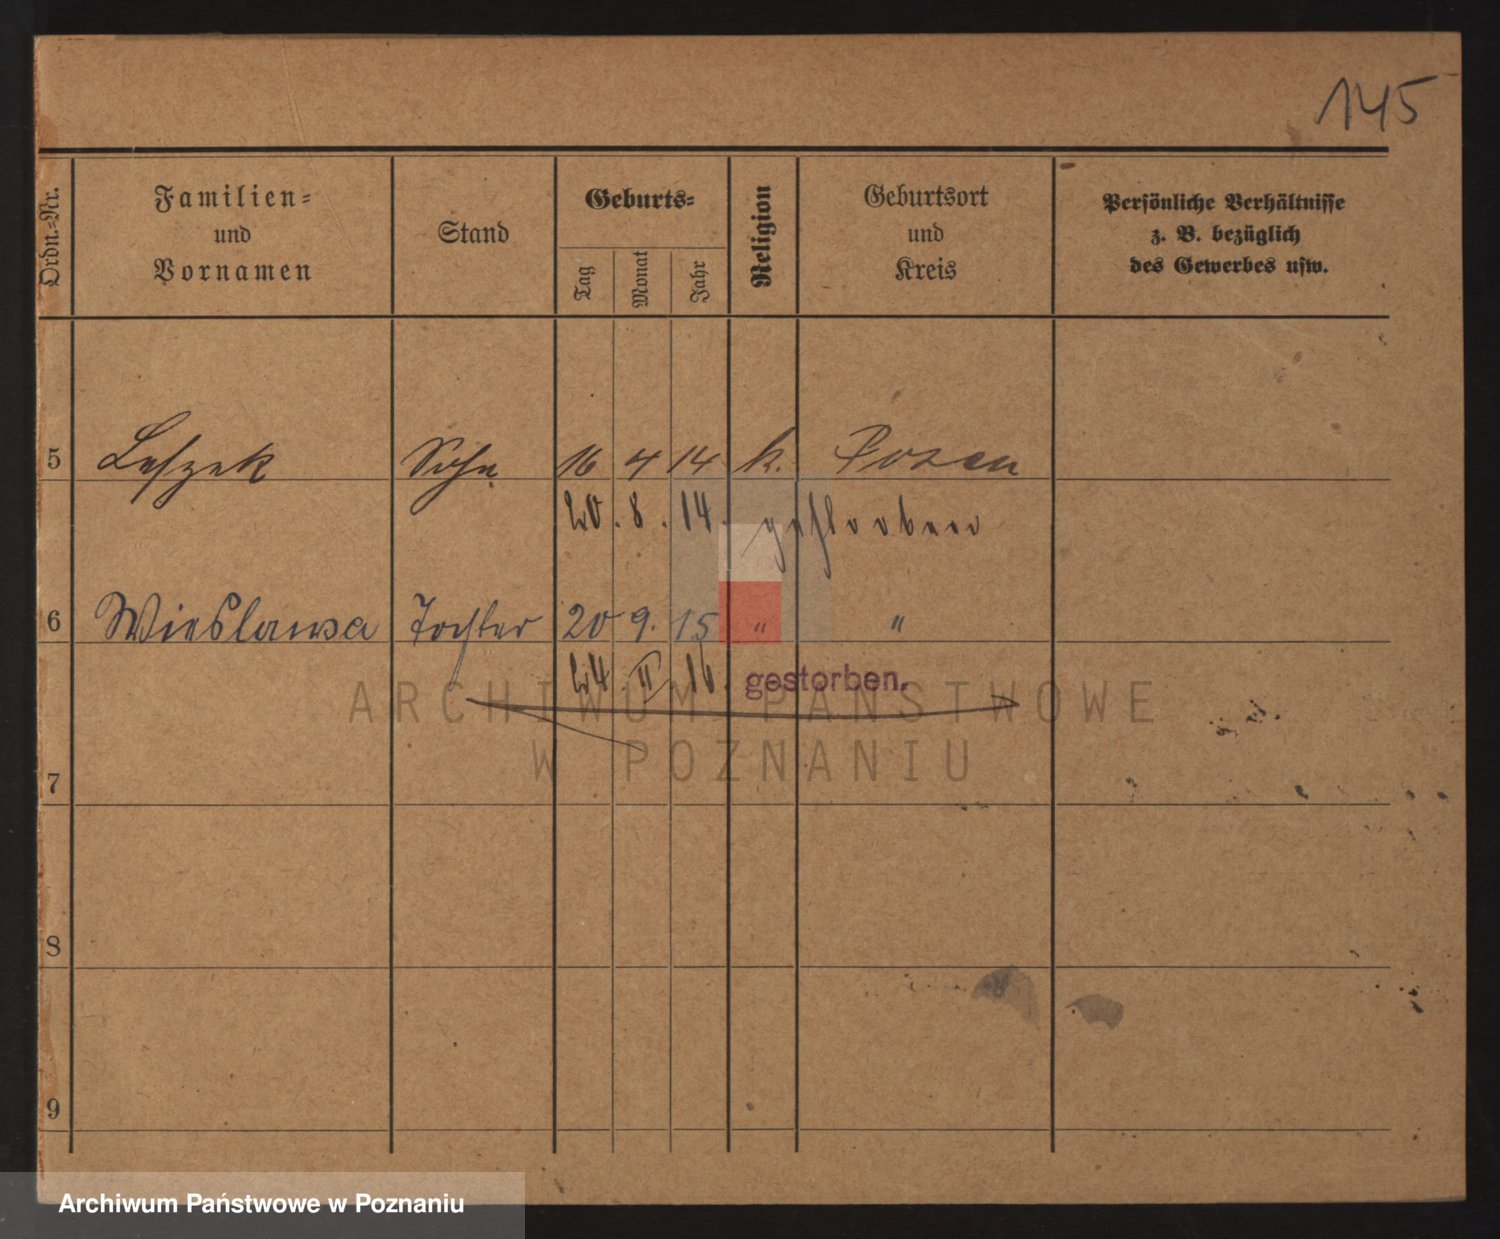 145
Ordn.-Nr.
Familien-
und
Vornamen
Stand
Geburts-
Tag
Monat
Jahr
Religion
Geburtsort
und
Kreis
Persönliche Verhältnisse
z. B. bezüglich
des Gewerbes usw.
5 Leszek Sohn 16 4 14 k. Posen
20. 8. 14. gestorben
6 Wieslawa Tochter 20 9. 15 " "
24. II 16. gestorben.
ARCHIWUM PAŃSTWOWE
W POZNANIU
7
8
9
Archiwum Państwowe w Poznaniu